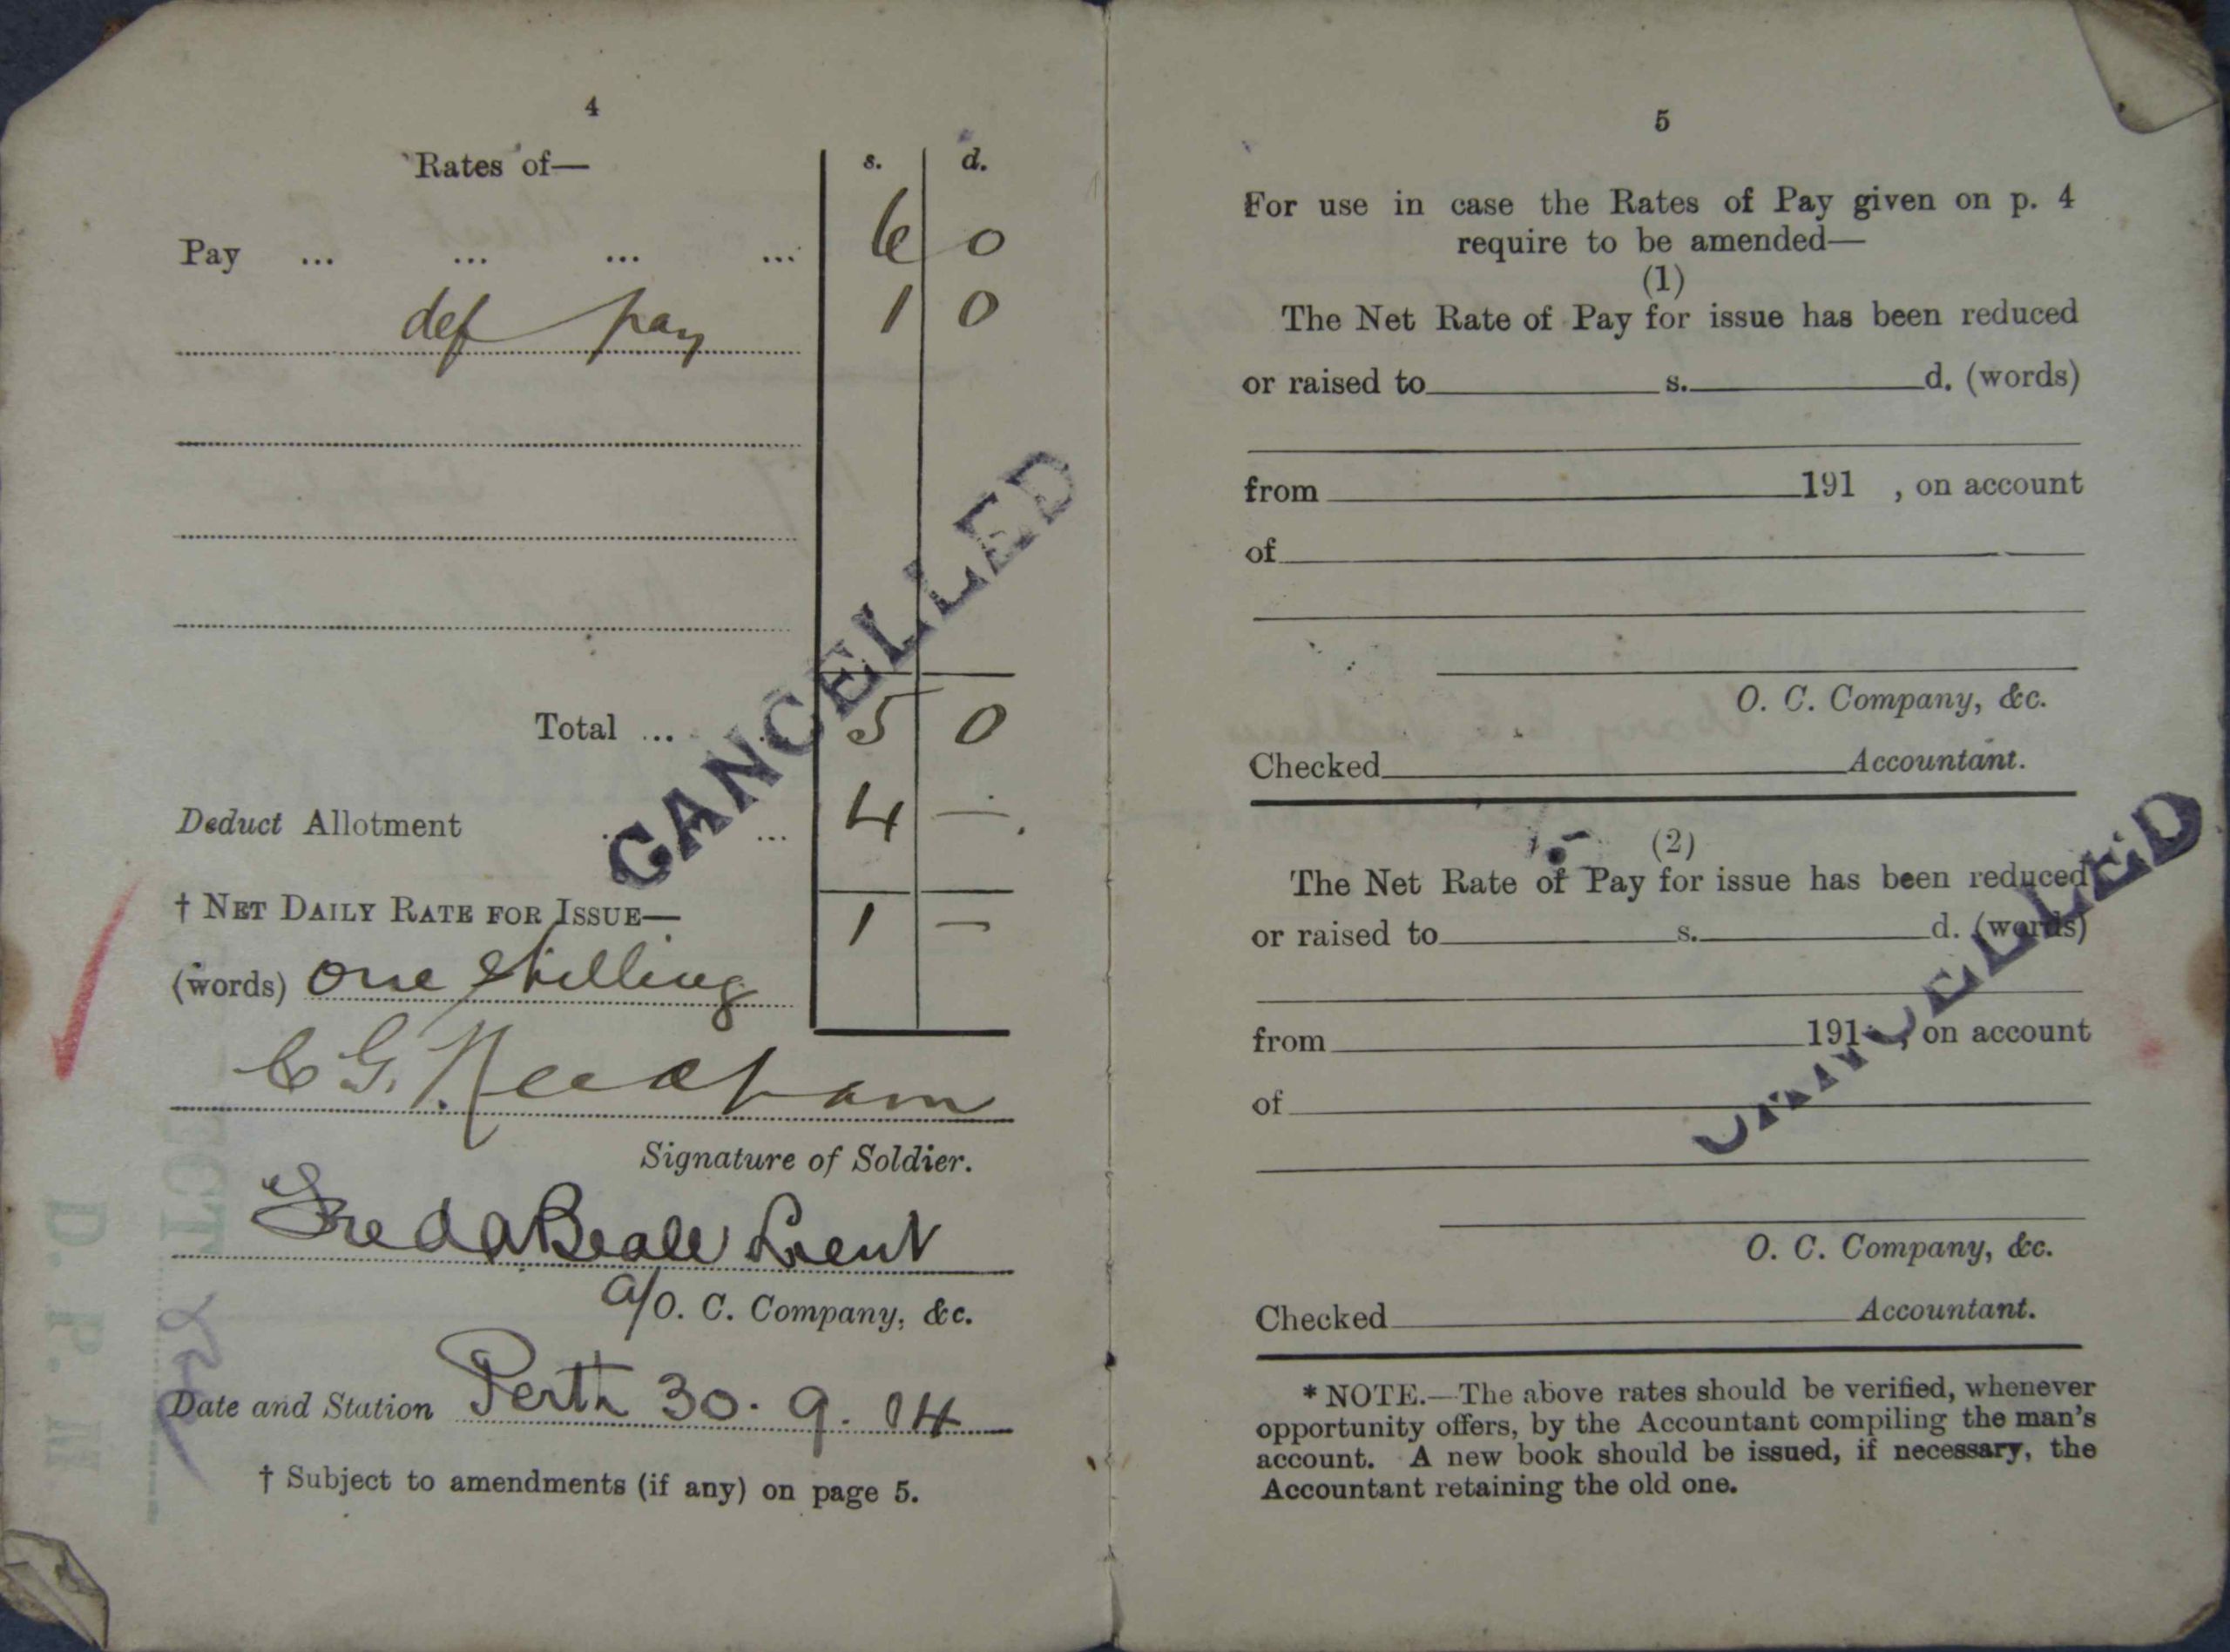 4
Rates of—
s. d.
Pay ... ... ... ... 6 0
def pay 1 0
Total ... ... 5 0
Deduct Allotment ... ... 4 —
† NET DAILY RATE FOR ISSUE— 1 —
(words) one shilling
C G. Needham
Signature of Soldier.
Fred A Beale Lieut
a/O. C. Company, &c.
Date and Station Perth 30. 9. 14
† Subject to amendments (if any) on page 5.
CANCELLED
5
For use in case the Rates of Pay given on p. 4
require to be amended—
(1)
The Net Rate of Pay for issue has been reduced
or raised to s. d. (words)
from 191 , on account
of
O. C. Company, &c.
Checked Accountant.
(2)
The Net Rate of Pay for issue has been reduced
or raised to s. d. (words)
from 191 , on account
of
O. C. Company, &c.
Checked Accountant.
* NOTE.—The above rates should be verified, whenever
opportunity offers, by the Accountant compiling the man's
account. A new book should be issued, if necessary, the
Accountant retaining the old one.
CANCELLED